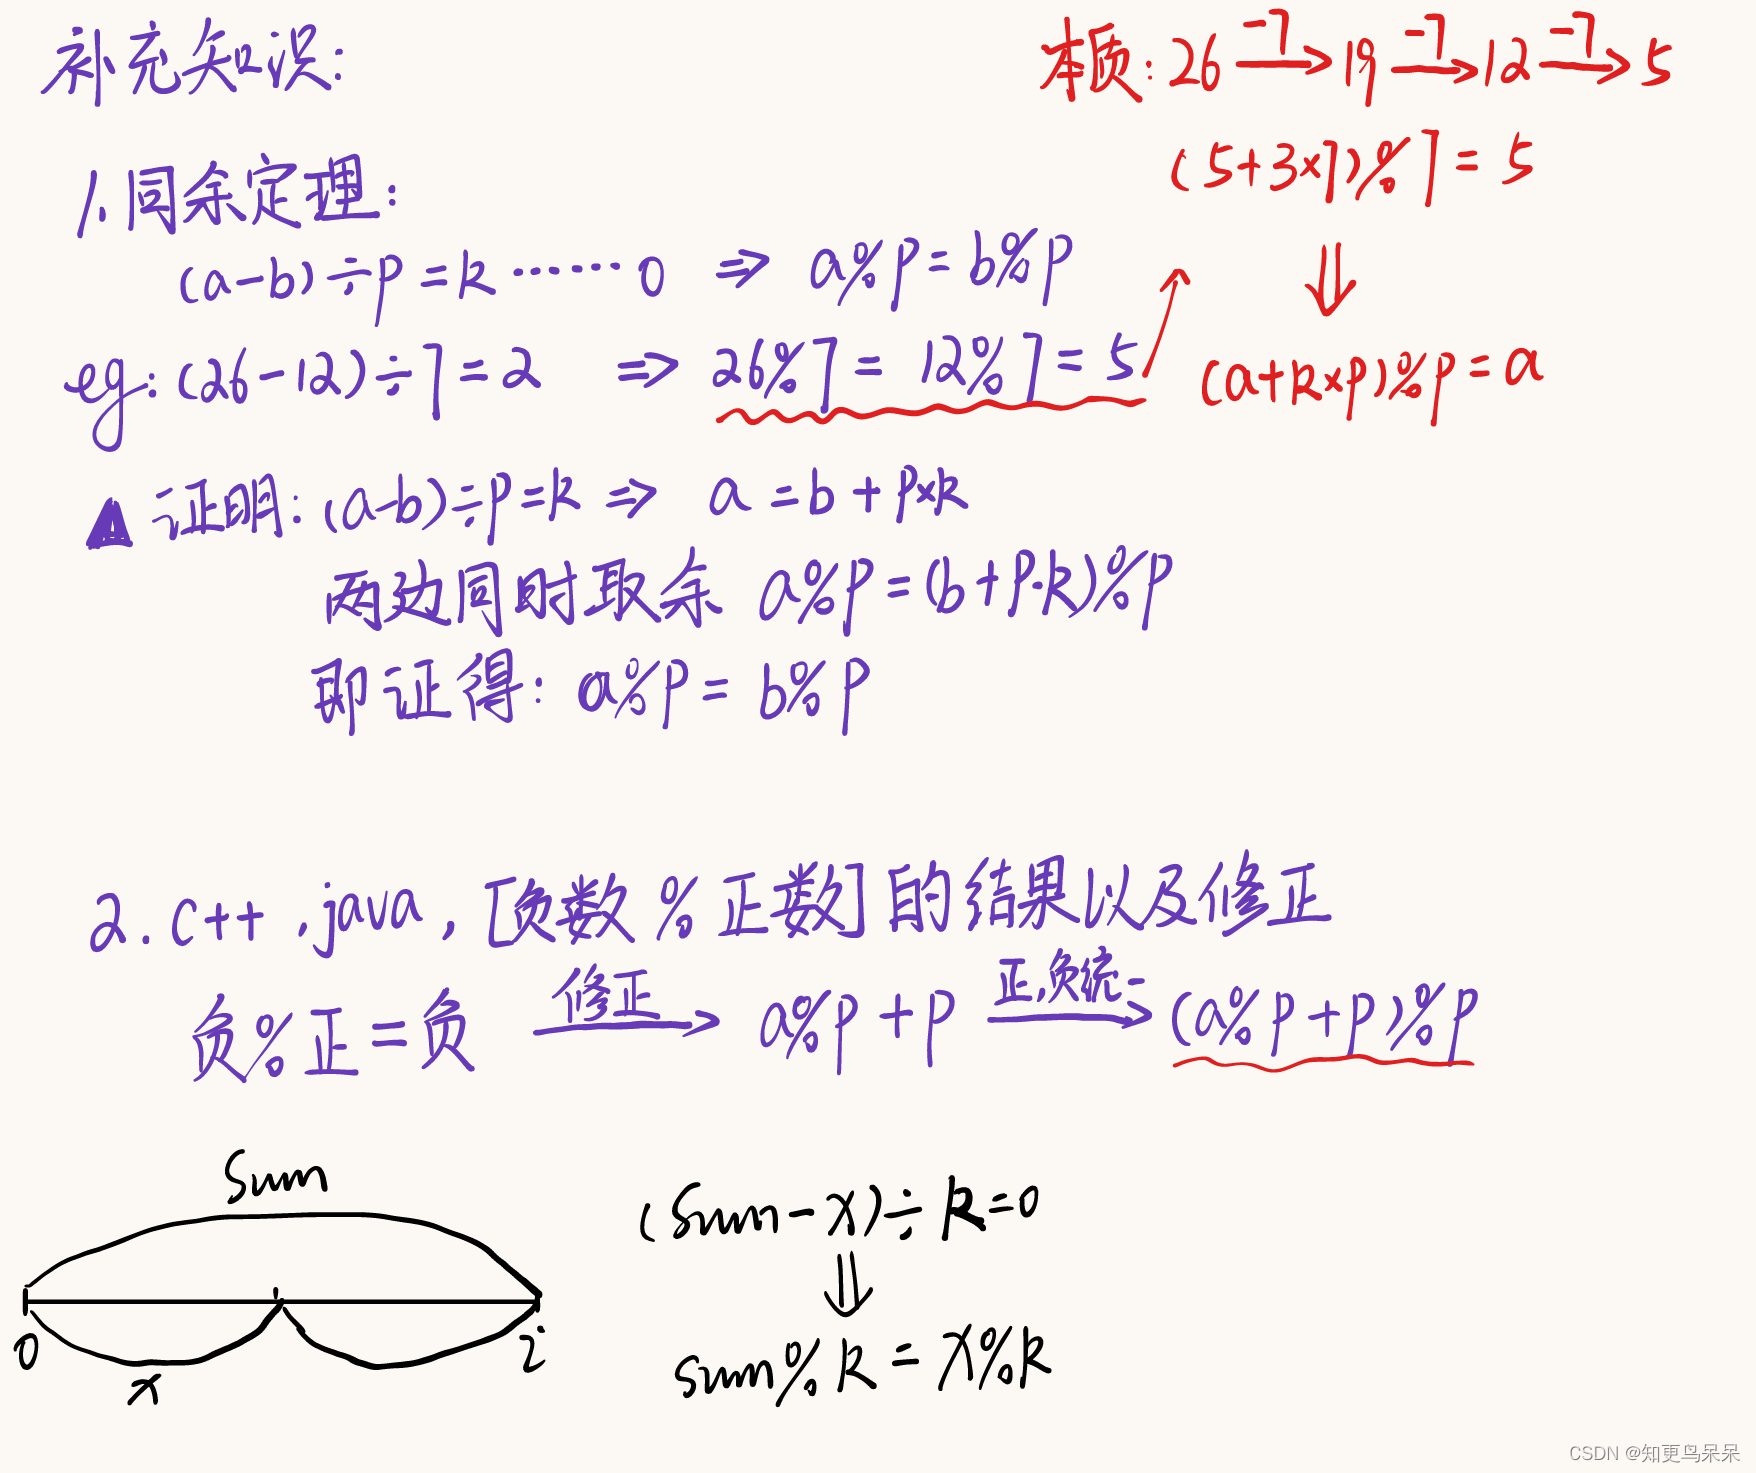 补充知识:
本质: 26 -7→ 19 -7→ 12 -7→ 5
(5+3×7)%7=5
⇓
(a+k×p)%p=a
1.同余定理:
(a-b)÷p=k……0 ⇒ a%p=b%p
eg: (26-12)÷7=2 ⇒ 26%7=12%7=5
证明: (a-b)÷p=k ⇒ a=b+p×k
两边同时取余 a%p=(b+p·k)%p
即证得: a%p=b%p
2. c++, java, [负数%正数]的结果以及修正
负%正=负 修正→ a%p+p 正,负统一→ (a%p+p)%p
Sum
0 i
x
(Sum-x)÷k=0
⇓
sum%k=x%k
CSDN @知更鸟呆呆